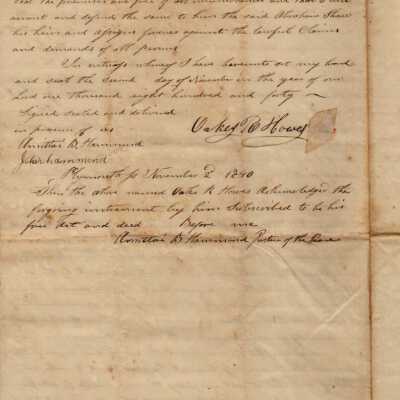 that the premises are free of all incumbrances and that I will
warrant and defend the same to him the said Abraham Shaw
his heirs and assigns forever against the lawful Claims
and demands of all persons
In witness whereof I have hereunto set my hand
and seal the second day of November in the year of our
Lord one thousand eight hundred and forty
Signed sealed and delivered
in presence of us
Oakes R Howes
D. Hammond
Hammond
Plymouth ss November 2 1840
Then the above named Oakes R Howes Acknowledges the
forgoing instrument by him Subscribed to be his
free Act and deed Before me
D Hammond Justice of the Peace